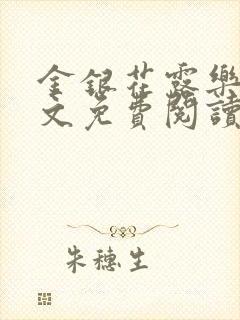 金銀花露樂
文免費閱讀
朱穗生